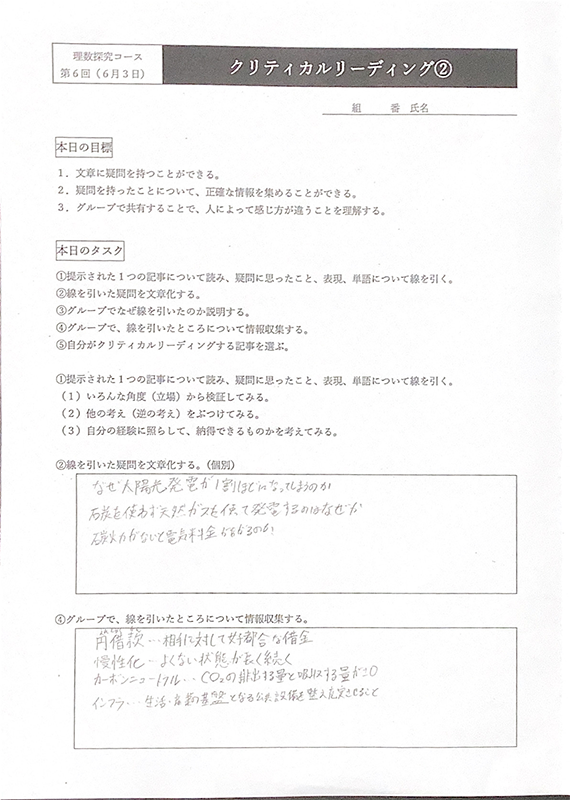 理数探究コース
第6回（6月3日）
クリティカルリーディング②
組　番 氏名
本日の目標
1．文章に疑問を持つことができる。
2．疑問を持ったことについて、正確な情報を集めることができる。
3．グループで共有することで、人によって感じ方が違うことを理解する。
本日のタスク
①提示された1つの記事について読み、疑問に思ったこと、表現、単語について線を引く。
②線を引いた疑問を文章化する。
③グループでなぜ線を引いたのか説明する。
④グループで、線を引いたところについて情報収集する。
⑤自分がクリティカルリーディングする記事を選ぶ。
①提示された1つの記事について読み、疑問に思ったこと、表現、単語について線を引く。
（1）いろんな角度（立場）から検証してみる。
（2）他の考え（逆の考え）をぶつけてみる。
（3）自分の経験に照らして、納得できるものかを考えてみる。
②線を引いた疑問を文章化する。（個別）
なぜ太陽光発電が1割ほどになってしまうのか
石炭を使わず天然ガスを使って発電するのはなぜか
がないと電気料金
④グループで、線を引いたところについて情報収集する。
円借款…相手に対して好都合な借金
慢性化…よくない状態が長く続く
カーボンニュートラル…CO2の排出する量と吸収する量が±0
インフラ…生活・産業の基盤となる公共設備を整え充実させること